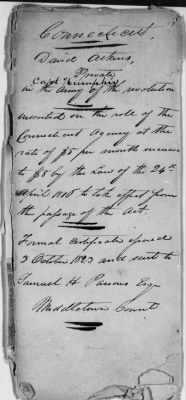 Connecticut,
David Aikins,
Private
Capt
in the Army of the revolution
inscribed on the roll of the
Connecticut Agency at the
rate of $5 per month
to $8 by the Law of the 24th
April 1816 to take effect from
the passage of the Act.
Formal certificate issued
3 October 1823 and sent to
Samuel H Parsons Esqr
Middletown Connt